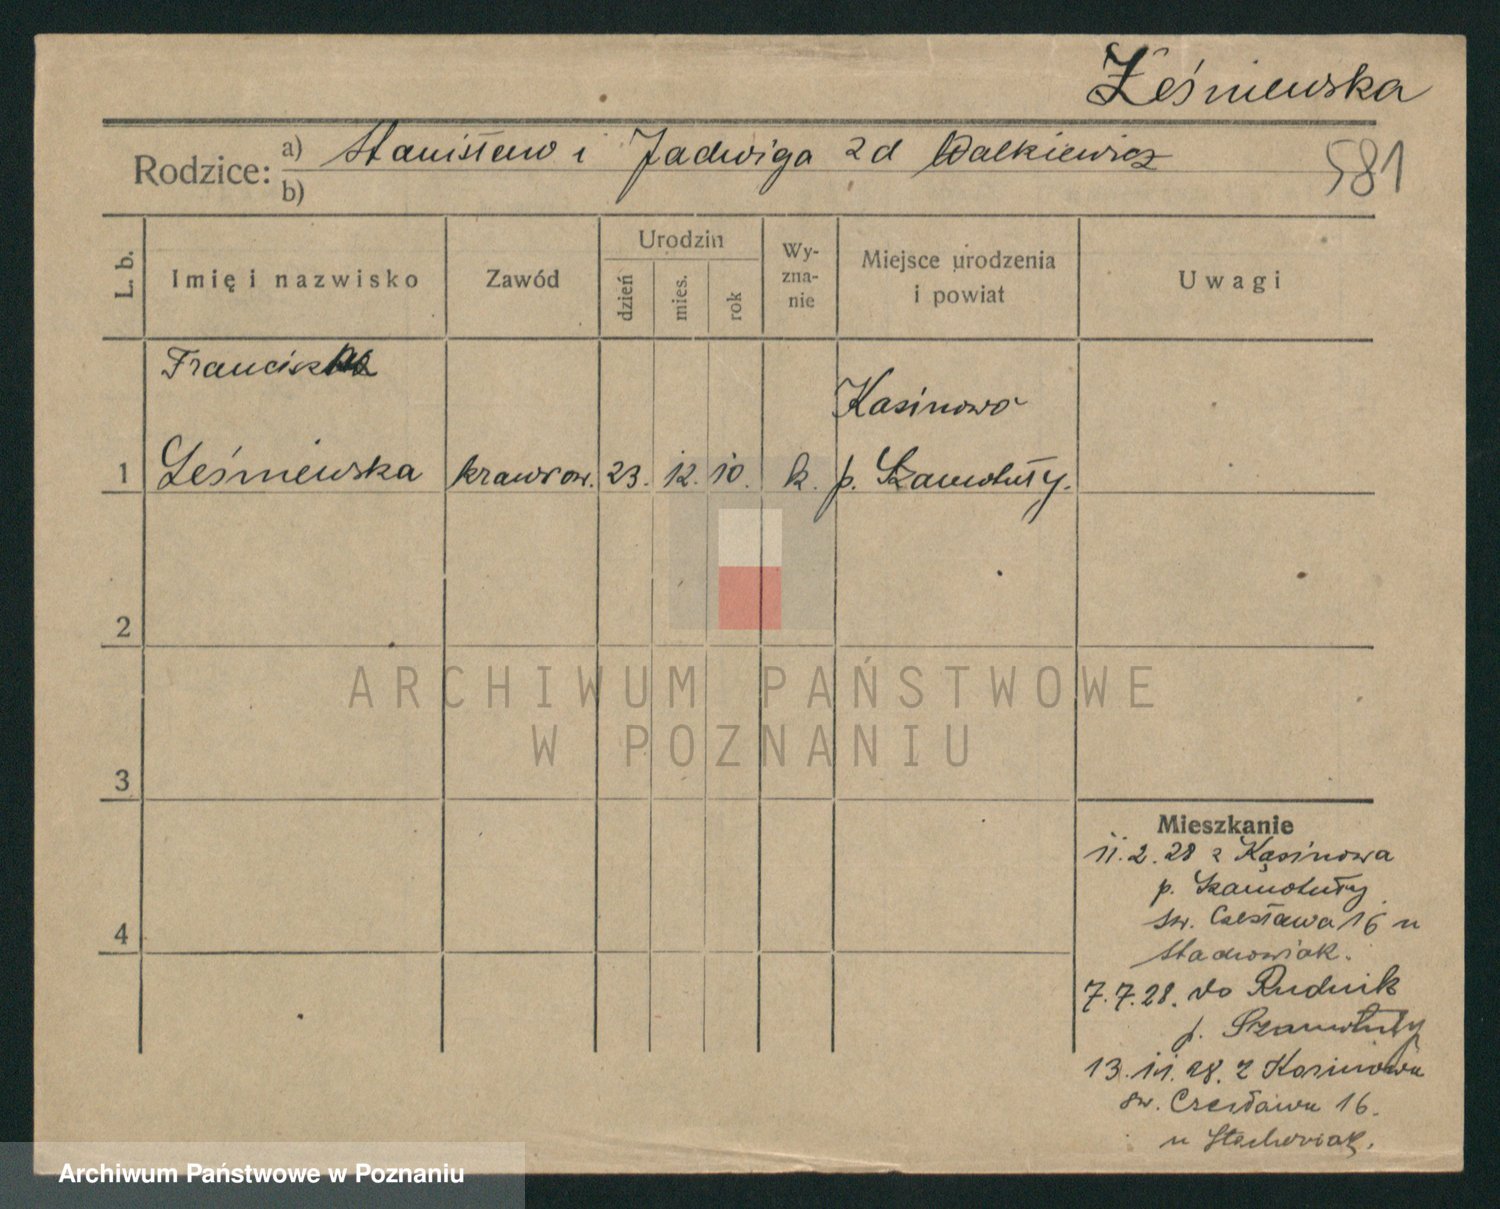 Leśniewska
Rodzice: a) Stanisław i Jadwiga zd Walkiewicz
b)
581
L. b.
Imię i nazwisko
Zawód
Urodzin
dzień
mies.
rok
Wy-
zna-
nie
Miejsce urodzenia
i powiat
Uwagi
Kasinowo
1 Leśniewska 23. 12. 10. k. p. Szamotuły.
2
3
4
ARCHIWUM PAŃSTWOWE
W POZNANIU
Mieszkanie
11.2.28 z Kąsinowa
p. Szamotuły
św. Czesława 16 u
Stachowiak.
7.7.28. do Rudnik
p. Szamotuły
13.11.28. z Kasinowa
św. Czesława 16.
u Stachowiak.
Archiwum Państwowe w Poznaniu